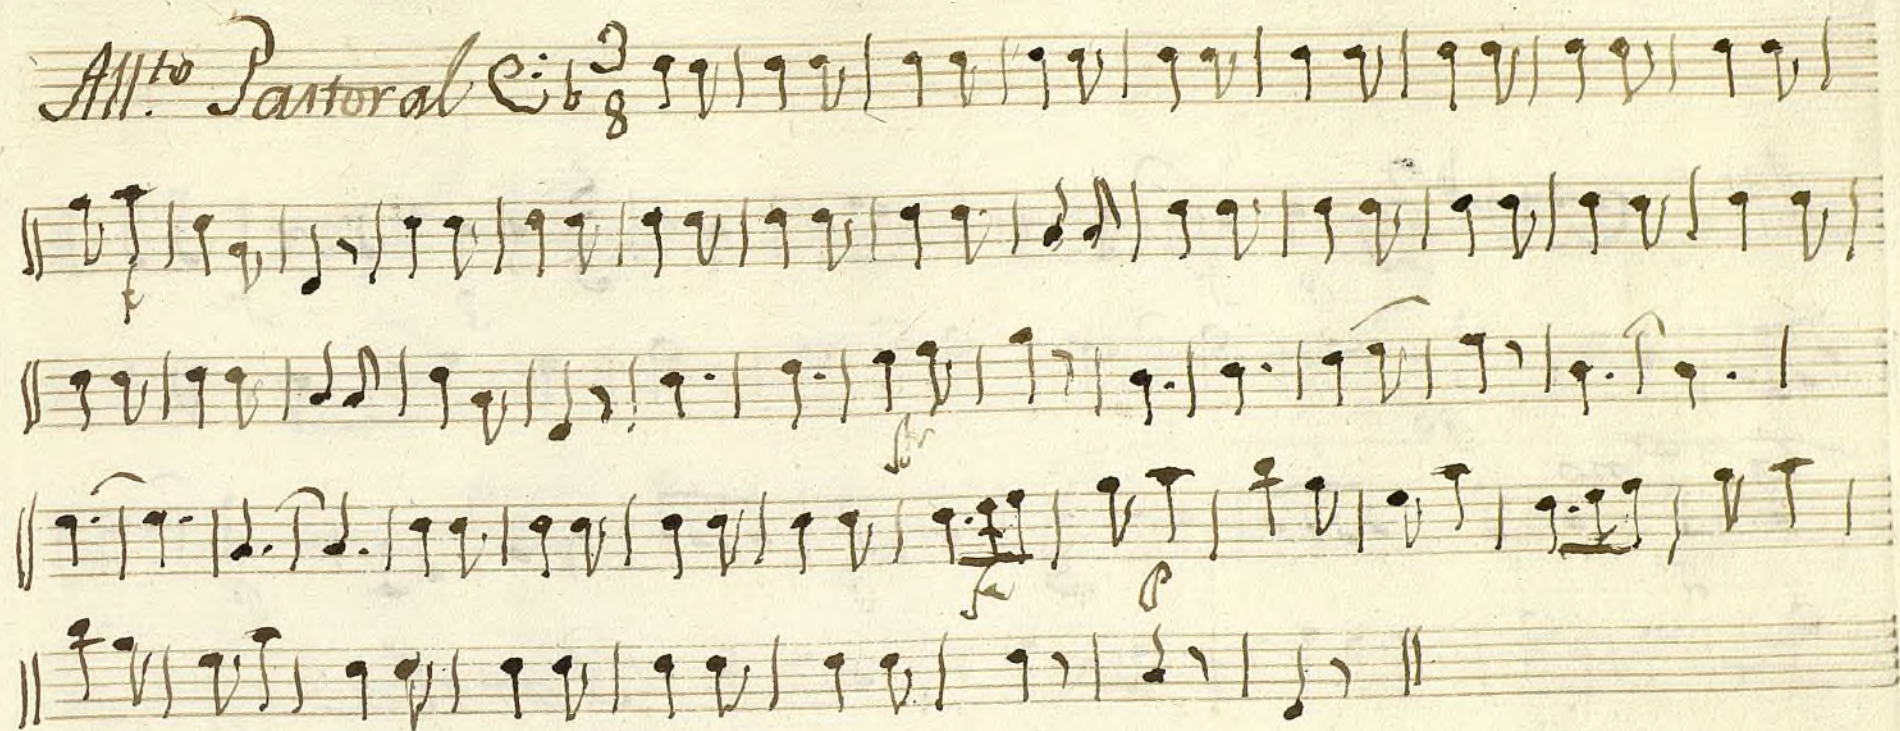 All.to Pastoral 3
8
f
for
fe
P